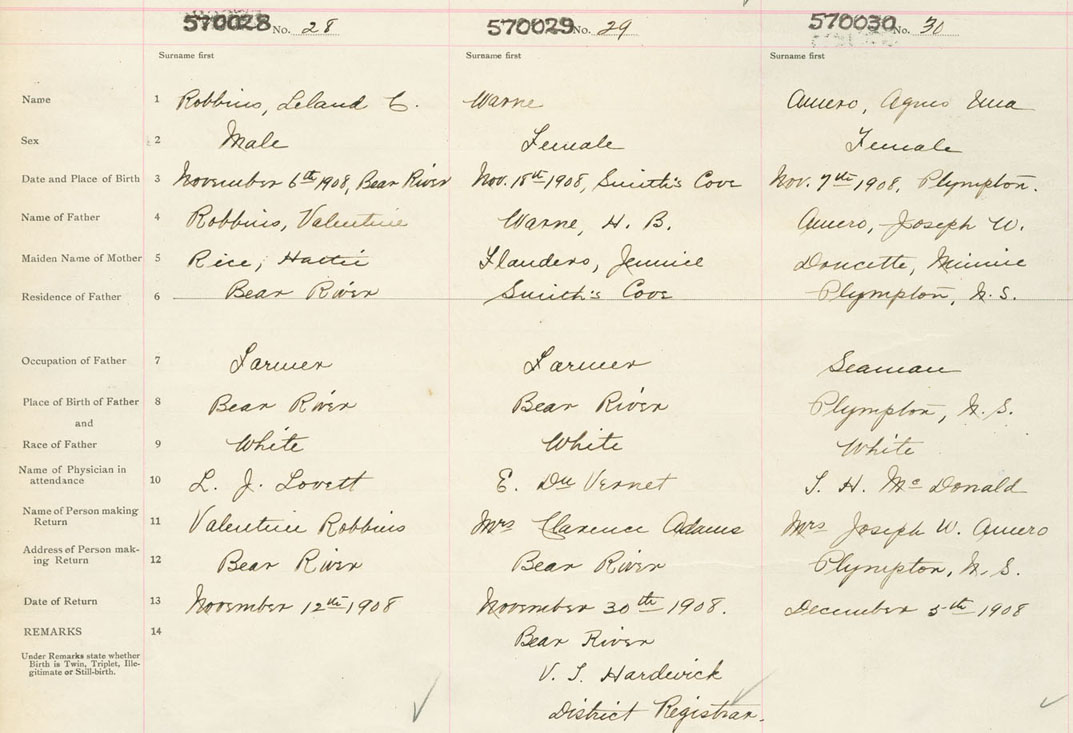 570028 No. 28 570029 No. 29 570030 No. 30
Surname first Surname first Surname first
Name 1 Robbins, Leland C. Warne Amero, Agnes Ena
Sex 2 Male Female Female
Date and Place of Birth 3 November 6th 1908, Bear River Nov. 18th 1908, Smith's Cove Nov. 7th 1908, Plympton.
Name of Father 4 Robbins, Valentine Warne, H. B. Amero, Joseph W.
Maiden Name of Mother 5 Rice, Hattie Flanders, Jennie Doucette, Minnie
Residence of Father 6 Bear River Smith's Cove Plympton, N.S.
Occupation of Father 7 Farmer Farmer Seaman
Place of Birth of Father 8 Bear River Bear River Plympton, N.S.
and
Race of Father 9 White White White
Name of Physician in
attendance 10 L. J. Lovett E. Du Vernet S. H. Mc Donald
Name of Person making
Return 11 Valentine Robbins Mrs Clarence Adams Mrs Joseph W. Amero
Address of Person mak-
ing Return 12 Bear River Bear River Plympton, N.S.
Date of Return 13 November 12th 1908 November 30th 1908. December 5th 1908
REMARKS 14 Bear River
Under Remarks state whether
Birth is Twin, Triplet, Ille-
gitimate or Still-birth.
V. S. Hardwick
District Registrar.